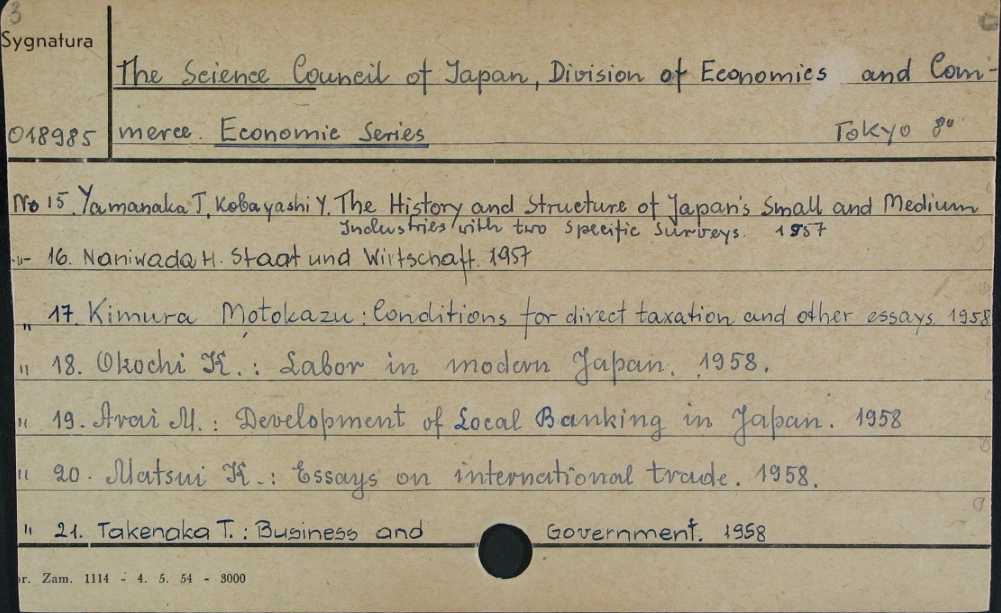 3
Sygnatura
The Science Council of Japan, Division of Economics and Com-
018985 merce. Economic Series Tokyo 8°
No 15. Yamanaka T, Kobayashi Y. The History and Structure of Japan's Small and Medium
Industries with two specific surveys. 1957
-"- 16. Naniwada H. Staat und Wirtschaft. 1957
" 17. Kimura Motokazu: Conditions for direct taxation and other essays. 1958
" 18. Okochi K.: Labor in modern Japan. 1958.
" 19. Arai M.: Development of Local Banking in Japan. 1958
" 20. Matsui K.: Essays on international trade. 1958.
" 21. Takenaka T.: Business and Government. 1958
r. Zam. 1114 - 4. 5. 54 - 3000